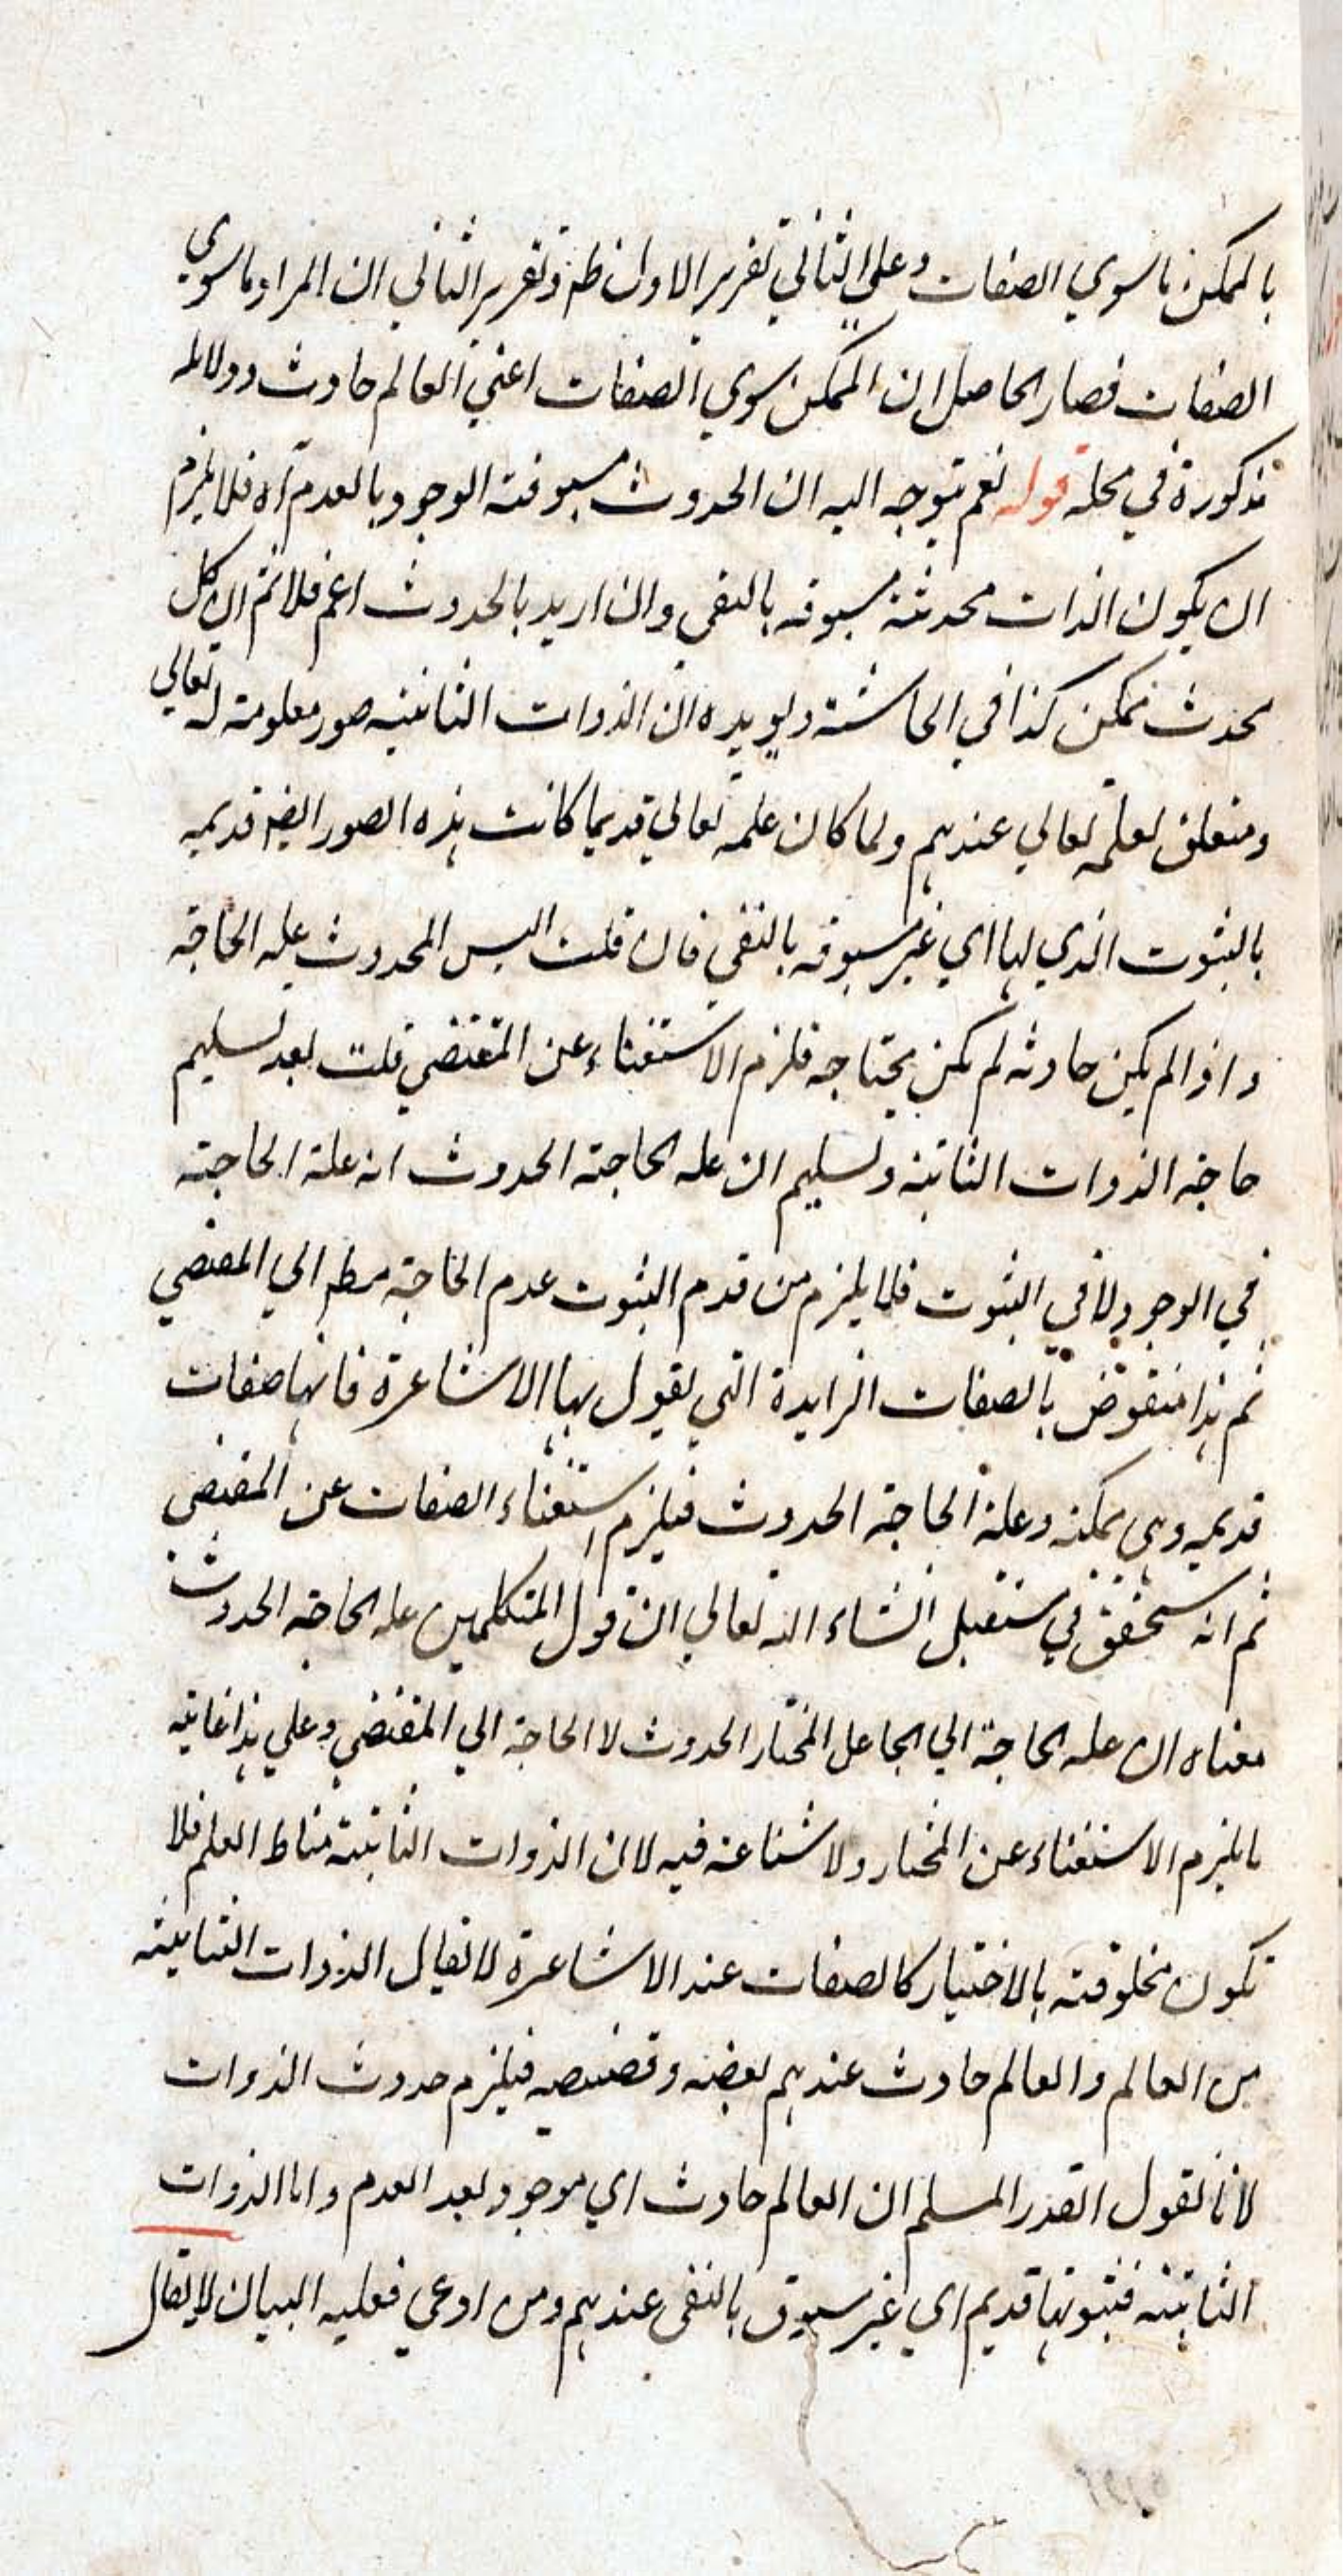 بالممكن ماسوي الصفات وعلي الثاني تقرير الاول ظه وتقرير الثاني ان المراد ماسوي
الصفات فصار الحاصل ان الممكن سوي الصفات اعني العالم حادث ودلائله
مذكورة في محله قوله نعم يتوجه اليه ان الحدوث مسبوقية الوجود بالعدم آه فلا يلزم
ان يكون الذات محدثة مسبوقه بالنفي وان اريد بالحدوث اعم فلا نم ان كل
محدث ممكن كذا في الحاشية ويويده ان الذوات الثابتيه صور معلومته له تعالي
ومتعلق لعلمه تعالي عندهم ولما كان علمه تعالي قديما كانت هذه الصور ايضه قديمه
بالثبوت الذي لها اي غير مسبوقه بالنفي فان قلت اليس الحدوث عله الحاجه
واذا لم يكن حادثه لم يكن محتاجه فلزم الاستغناء عن المقتضي قلت بعد تسليم
حاجه الذوات الثابته وتسليم ان عله الحاجته الحدوث انه علة الحاجته
في الوجود لا في الثبوت فلا يلزم من قدم الثبوت عدم الحاجته مطه الي المقتضي
ثم هذا منقوض بالصفات الزايدة التي يقول بها الاشاعرة فانها صفات
قديمه وهي ممكنه وعلة الحاجة الحدوث فيلزم استغناء الصفات عن المقتضي
ثم انه سيحقق في مستقبل انشاء الله تعالي ان قول المتكلمين عله الحاجه الحدوث
معناه ان عله الحاجة الي الجاعل المختار الحدوث لا الحاجة الي المقتضي وعلي هذا غايته
ما يلزم الاستغناء عن المختار ولا شناعه فيه لان الذوات الثابتية مناط العلم فلا
تكون مخلوقته بالاختيار كالصفات عند الاشاعرة لا يقال الذوات الثابيته
من العالم والعالم حادث عندهم بعضه وقضيضه فيلزم حدوث الذوات
لانا نقول القدر المسلم ان العالم حادث اي موجود بعد العدم واما الذوات
الثابتيه فثبوتها قديم اي غير مسبوق بالنفي عندهم ومن ادعي فعليه البيان لا يقال